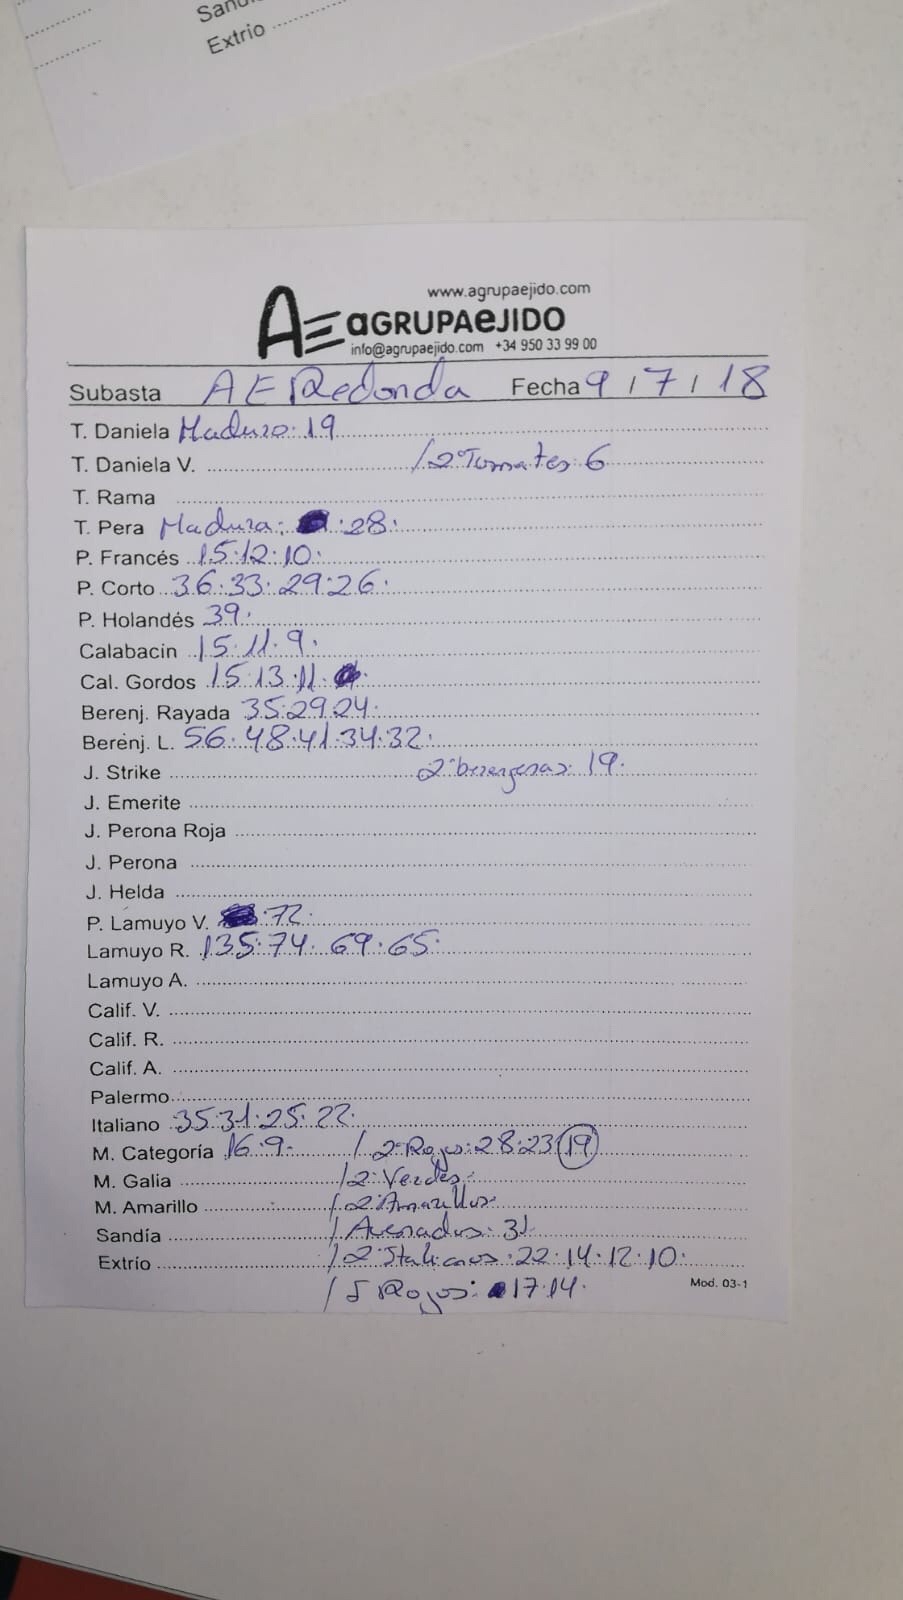 Extrio
www.agrupaejido.com
AE aGRUPAeJIDO
info@agrupaejido.com +34 950 33 99 00
Subasta AE Redonda Fecha 9 / 7 / 18
T. Daniela Maduro: 19
T. Daniela V. / 2ªTomates: 6
T. Rama
T. Pera Madura: : 28.
P. Francés 15.12.10.
P. Corto 36.33.29.26.
P. Holandés 39.
Calabacin 15.11.9.
Cal. Gordos 15.13.11.
Berenj. Rayada 35.29.24.
Berenj. L. 56.48.41.34.32.
J. Strike 2ªberengenas: 19.
J. Emerite
J. Perona Roja
J. Perona
J. Helda
P. Lamuyo V. .72.
Lamuyo R. 135.74.69.65.
Lamuyo A.
Calif. V.
Calif. R.
Calif. A.
Palermo
Italiano 35.31.25.22.
M. Categoría 16.9. / 2ªRojos: 28.23 19
M. Galia / 2ª Verdes:
M. Amarillo / 2ªAmarillos
Sandía / Asenados: 31.
Extrío / 2ªItalianos: 22.14.12.10.
/ Rojos: 17.14.
Mod. 03-1